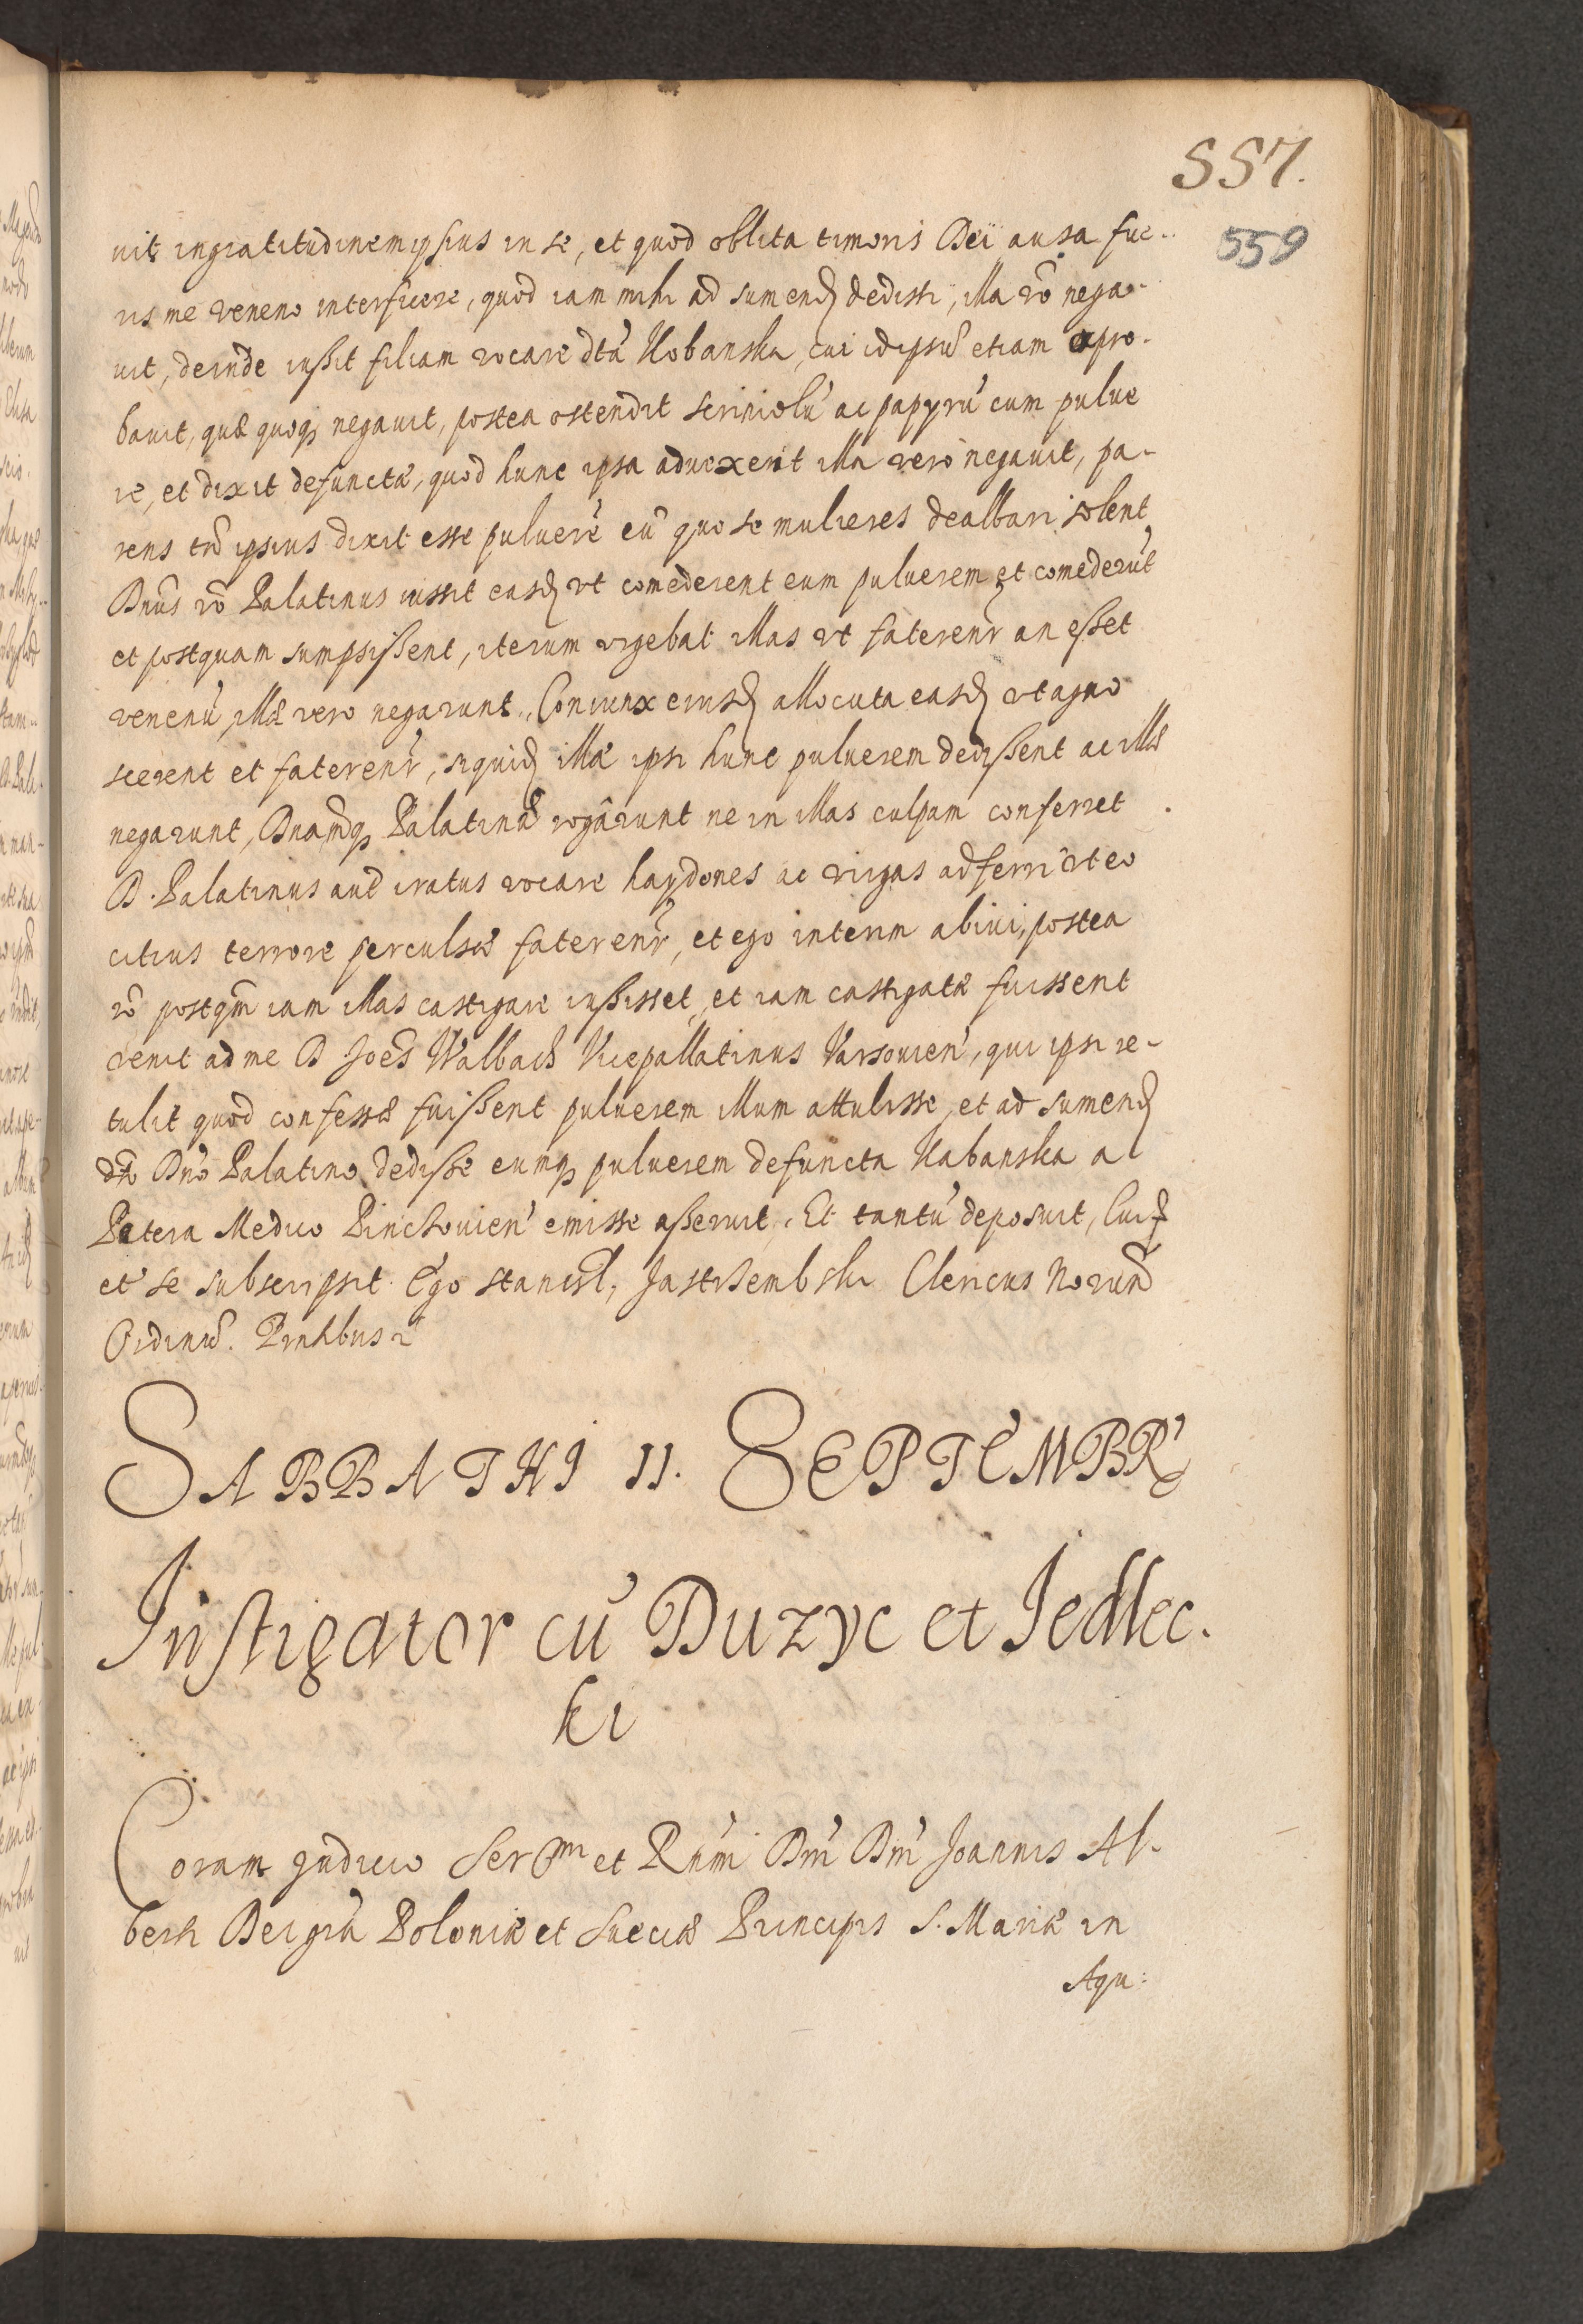 557.
559
uit ingratitudinem ipsius in se, et quod oblita timoris Dei ausa fue-
ris me veneno interficere, quod iam mihi ad sumend dedisti, illa vo nega-
uit, deinde iussit filiam vocare dta Kobanska, cui idipsu etiam expro-
bauit, quæ quoq negauit, postea ostendit scriniolu ac papyru cum pulue
re, et dixit defunctæ, quod hunc ipsa aduexerit illa vero negauit, pa-
rens tn ipsius dixit esse puluere eu quo se mulieres dealbari solent
Dnus vo Palatinus iussit easd vt comederent eum puluerem et comederut
et postquam sumpsissent, iterum vrgebat illas vt faterenr an esset
venenu, illæ vero negarunt, Coniunx eiusd allocuta easd vt agno
scerent et faterenr, siquid illæ ipsi hunc puluerem dedissent ac illæ
negarunt, Dnamq Palatina rogârunt ne in illas culpam conferret
D. Palatinus aut iratus vocare haydones ac virgas adferri vt eo
citius terrore perculsæ faterenr, et ego interim abiui, postea
vo postqm iam illas castigare iussisset, et iam castigatæ fuissent
venit ad me D Joes Walbach Vicepallatinus Varsouien, qui ipsi re-
tulit quod confessæ fuissent puluerem illum attulisse, et ad sumend
dto Dno Palatino dedisse eumq puluerem defuncta Kabanska a
Patera Medico Pinchouien emisse asseruit. Et tantu deposuit,
et se subscripsit Ego Stanisl, Jastrsembski Clericus
Ordinu. Pntibus
SABBATHI 11. SEPTEMBR
Instigator cu Duzyc et Jedlec.
ki
Coram Judicio Ser et Rmi Dni Dni Joannis Al-
berti Dei gra Poloniæ et Sueciæ Principis S. Mariæ in
Aqu: